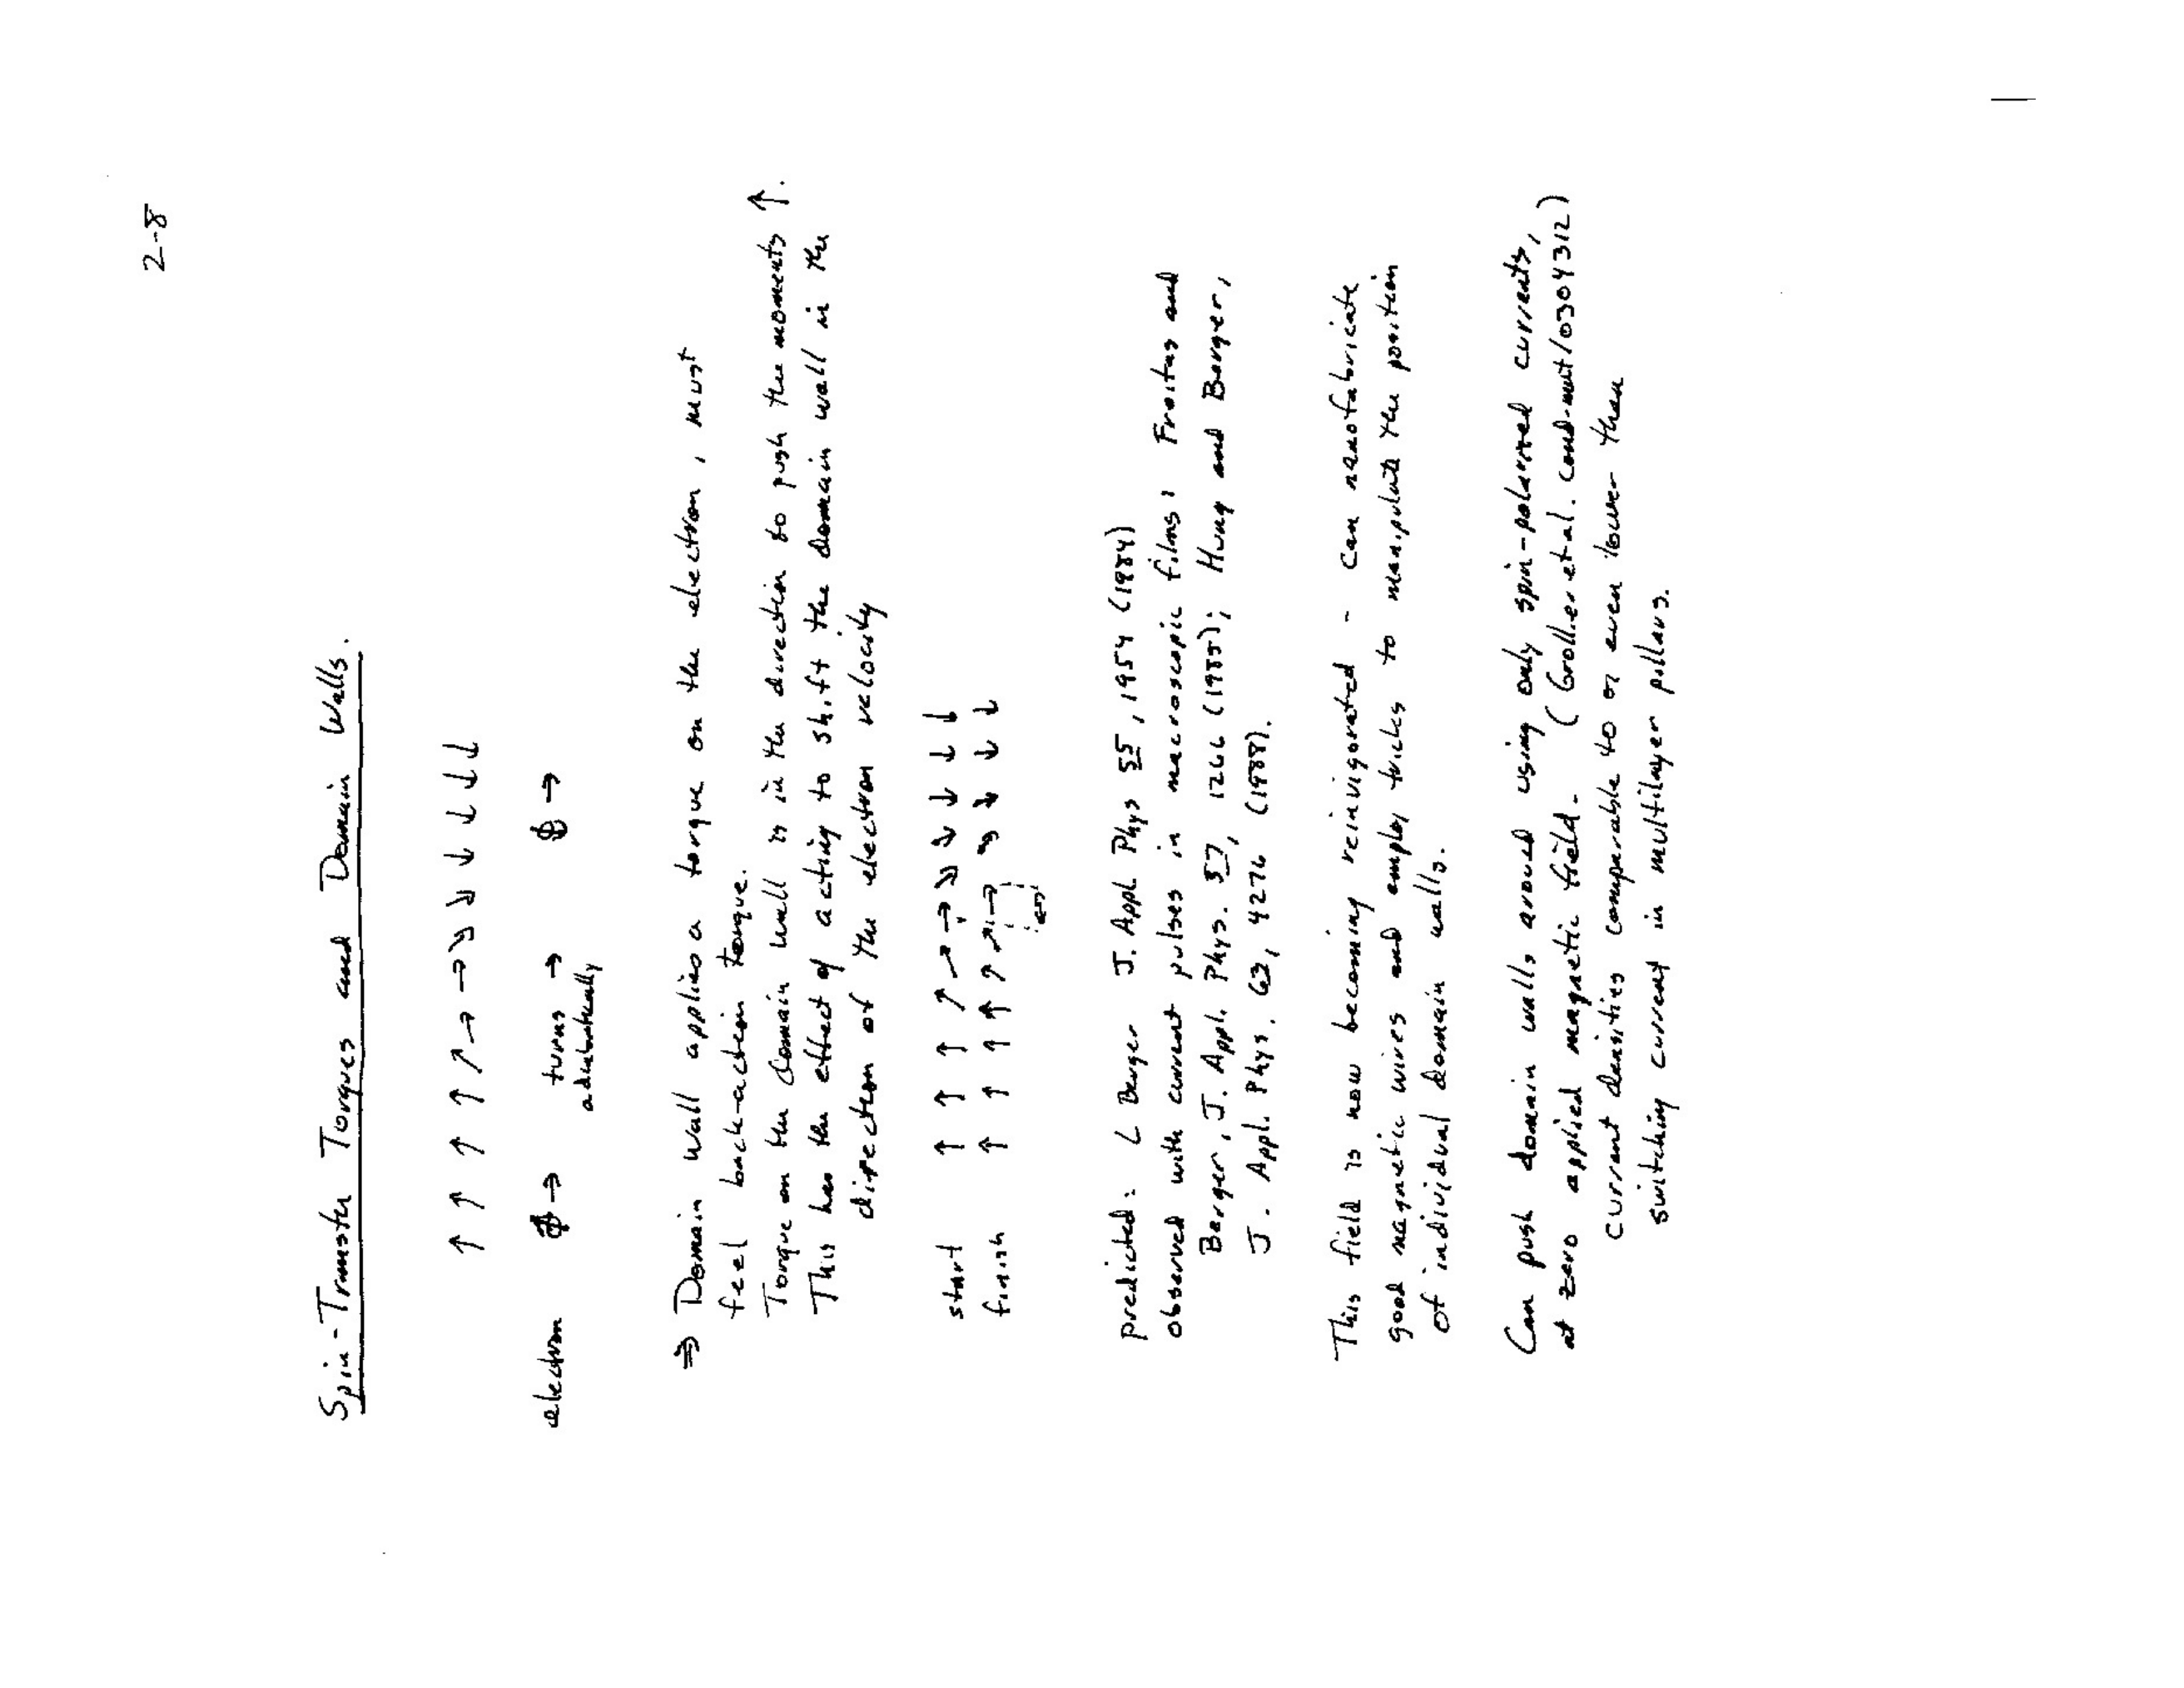 2-8
Spin-Transfer Torques and Domain Walls.
↑ ↑ ↑ ↑ ↗ → → ↘ ↘ ↓ ↓ ↓ ↓
electron → turns → →
adiabatically
⇒ Domain wall applies a torque on the electron, must
feel back-action torque.
Torque on the domain wall is in the direction to push the moments ↑.
This has the effect of acting to shift the domain wall in the
direction of the electron velocity
start ↑ ↑ ↑ ↗ ↗ → ↘ ↘ ↓ ↓ ↓
finish ↑ ↑ ↑ ↑ ↗ ↗ → ↘ ↘ ↓ ↓
predicted: L Berger J. Appl Phys 55, 1954 (1984)
observed with current pulses in macroscopic films: Freitas and
Berger, J. Appl. Phys. 57, 1266 (1985); Hung and Berger,
J. Appl. Phys. 63, 4276 (1988).
This field is now becoming reinvigorated - can nanofabricate
good magnetic wires and employ tricks to manipulate the position
of individual domain walls.
Can push domain walls around using only spin-polarized currents,
at zero applied magnetic field. (Grollier et al. cond-mat/0304312)
current densities comparable to or even lower than
switching current in multilayer pillars.